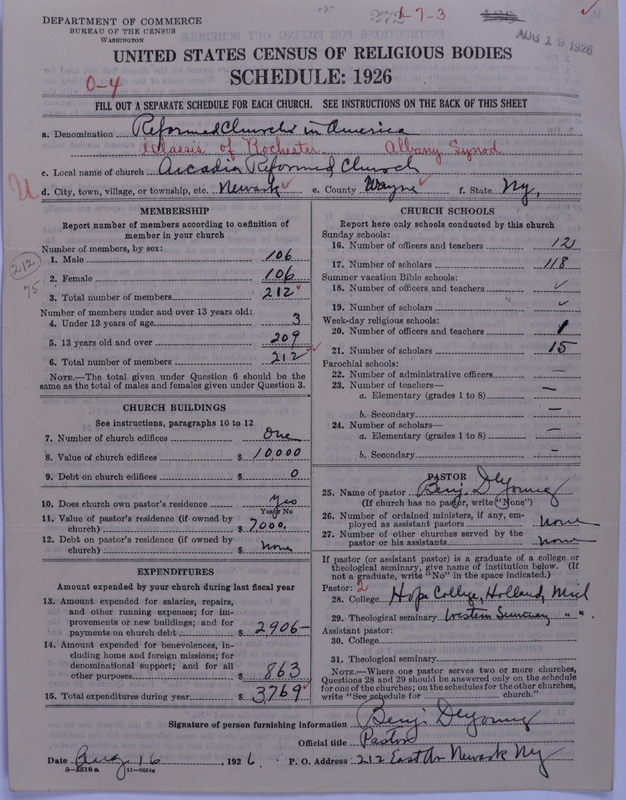 DEPARTMENT OF COMMERCE
BUREAU OF THE CENSUS
WASHINGTON
17-3
AUG 19 1926
UNITED STATES CENSUS OF RELIGIOUS BODIES
SCHEDULE: 1926
0-4
FILL OUT A SEPARATE SCHEDULE FOR EACH CHURCH. SEE INSTRUCTIONS ON THE BACK OF THIS SHEET
a. Denomination Reformed Church in America
Classis of Rochester Albany Synod
c. Local name of church Arcadia Reformed Church
U
d. City, town, village, or township, etc. Newark e. County Wayne f. State Ny.
MEMBERSHIP
Report number of members according to definition of
member in your church
Number of members, by sex:
1. Male 106
2. Female 106
3. Total number of members 212
212
75
Number of members under and over 13 years old:
4. Under 13 years of age 3
5. 13 years old and over 209
6. Total number of members 212
NOTE.—The total given under Question 6 should be
same as the total of males and females given under Question 3.
CHURCH BUILDINGS
See instructions, paragraphs 10 to 12
7. Number of church edifices One
8. Value of church edifices $ 10,000
9. Debt on church edifices $ 0
10. Does church own pastor's residence yes
Yes or No
11. Value of pastor's residence (if owned by
church) $ 7000.
12. Debt on pastor's residence (if owned by
church) $ None
EXPENDITURES
Amount expended by your church during last fiscal year
13. Amount expended for salaries, repairs,
and other running expenses; for im-
provements or new buildings; and for
payments on church debt $ 2906-
14. Amount expended for benevolences, in-
cluding home and foreign missions; for
denominational support; and for all
other purposes $ 863
15. Total expenditures during year $ 3,769
CHURCH SCHOOLS
Report here only schools conducted by this church
Sunday schools:
16. Number of officers and teachers 12
17. Number of scholars 118
Summer vacation Bible schools:
18. Number of officers and teachers ✓
19. Number of scholars ✓
Week-day religious schools:
20. Number of officers and teachers 1
21. Number of scholars 15
Parochial schools:
22. Number of administrative officers —
23. Number of teachers—
a. Elementary (grades 1 to 8) —
b. Secondary —
24. Number of scholars—
a. Elementary (grades 1 to 8) —
b. Secondary —
PASTOR
25. Name of pastor Benj. DeYoung
(If church has no pastor, write "None")
26. Number of ordained ministers, if any, em-
ployed as assistant pastors none
27. Number of other churches served by the
pastor or his assistants none
If pastor (or assistant pastor) is a graduate of a college or
theological seminary, give name of institution below. (If
not a graduate, write "No" in the space indicated.)
Pastor: 2
28. College Hope College, Holland, Mich
29. Theological seminary Western Seminary " "
Assistant pastor:
30. College
31. Theological seminary
NOTE.—Where one pastor serves two or more churches,
Questions 28 and 29 should be answered only on the schedule
for one of the churches; on the schedules for the other churches,
write "See schedule for church."
Signature of person furnishing information Benj. DeYoung
Official title Pastor
Date Aug 16, 1926 P. O. Address 212 East Av Newark Ny
8-5518a 11-9054a